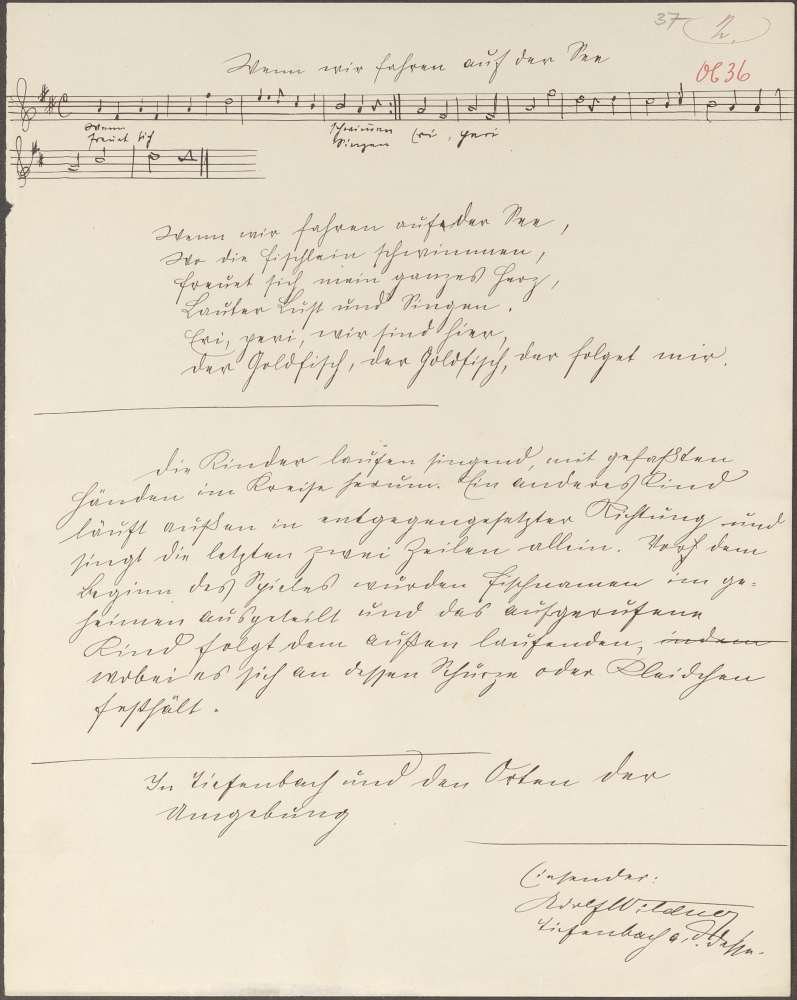 37 2.
Wenn wir fahren auf der See
Ob 36
Wenn schwimmen Eri, peri
freuet sich Singen
Wenn wir fahren auf der See,
Wo die Fischlein schwimmen,
Freuet sich mein ganzes Herz,
Lauter Lust und Singen.
Eri, peri, wir sind hier,
der Goldfisch, der Goldfisch, der folget mir.
Die Kinder laufen singend, mit gefaßten
Händen im Kreise herum. Ein anderes Kind
läuft außen in entgegengesetzter Richtung und
singt die letzten zwei Zeilen allein. Vor dem
Beginn des Spieles wurden Fischnamen im ge=
heimen ausgeteilt und das aufgerufene
Kind folgt dem außen laufenden, indem
wobei es sich an dessen Schürze oder Kleidchen
festhält.
In Tiefenbach und den Orten der
Umgebung
Einsender:
Adolf Wildner
Tiefenbach a. d. Desse.